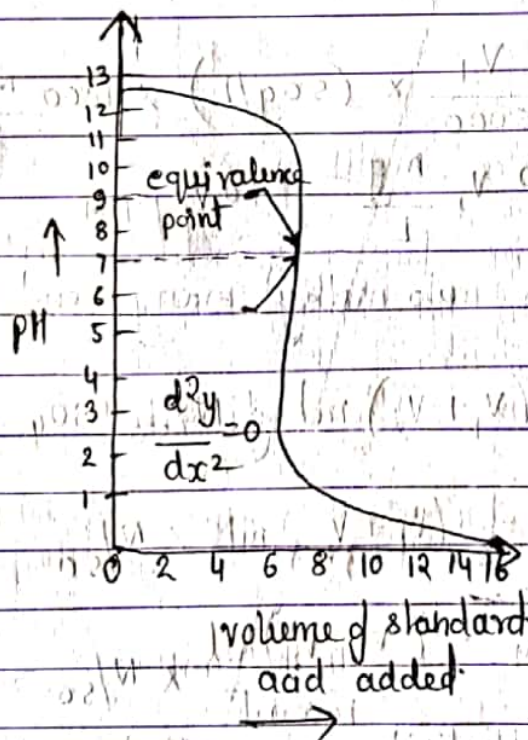 13
12
11
10
9
8
7
6
5
4
3
2
1
equivalence
point
PH
d²y
dx²
=0
0 2 4 6 8 10 12 14 16
volume of standard
acid added.